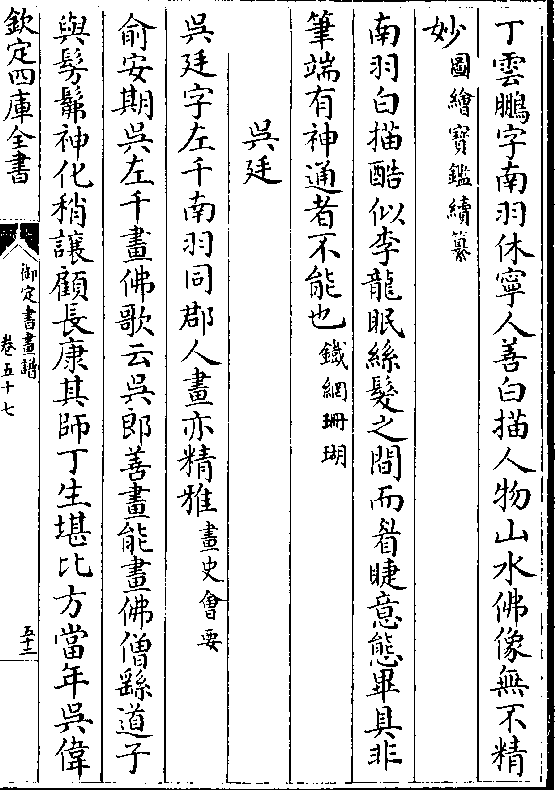 丁雲鵬字南羽休寧人善白描人物山水佛像無不精
妙圖繪寶鑑續纂
南羽白描酷似李龍眠絲髮之間而眉睫意態畢具非
筆端有神通者不能也鐵網珊瑚
吳廷
吳廷字左千南羽同郡人畫亦精雅畫史會要
俞安期吳左千畫佛歌云吳郎善畫能畫佛僧繇道子
與髣髴神化稍讓顧長康其師丁生堪比方當年吳偉
欽定四庫全書
御定書畫譜
卷五十七
五十三